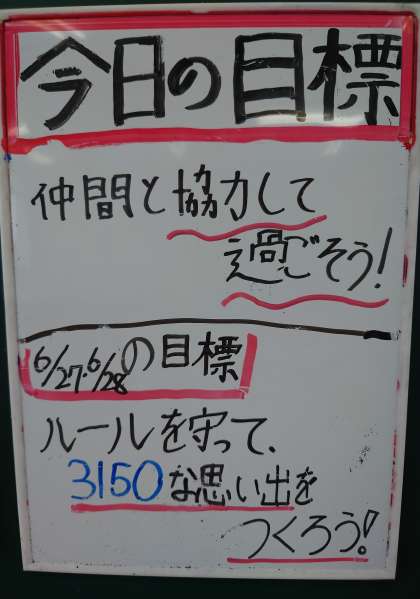 今日の目標
仲間と協力して
過ごそう!
6/27・6/28の目標
ルールを守って、
3150な思い出を
つくろう!